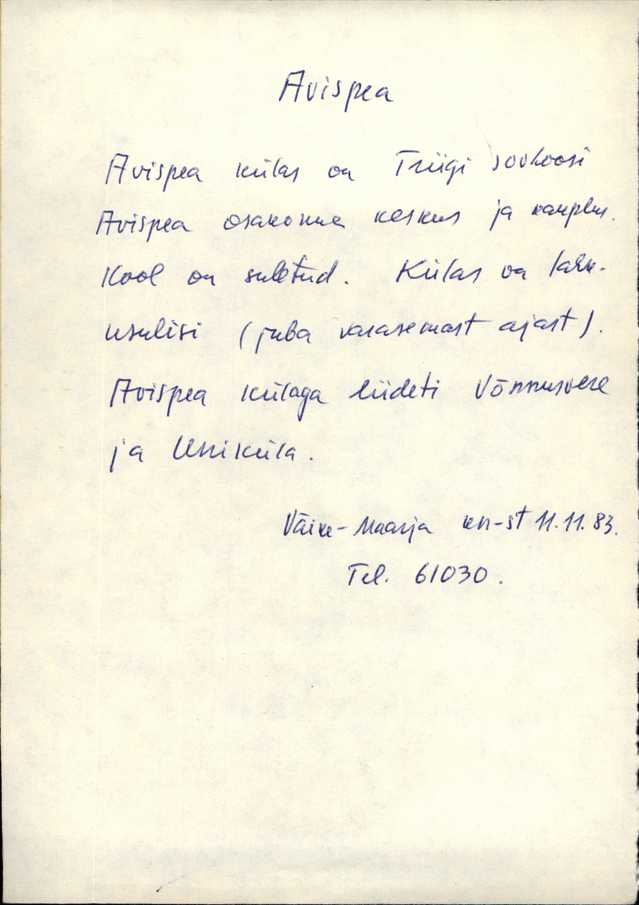 Avispea
Avispea külas on Triigi sovhoosi
Avispea osakonna keskus ja kauplus.
Kool on suletud. Külas on
usulisi (juba varasemast ajast).
Avispea külaga liideti Võnnusvere
ja Uniküla.
Väike-Maarja kn-st 11.11.83.
Tel. 61030.